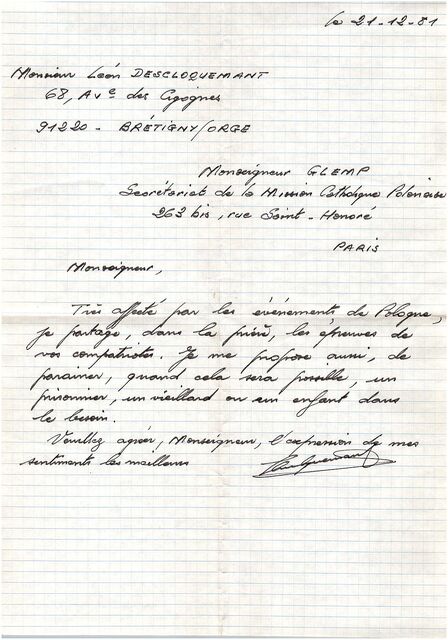 le 21-12-81
Monsieur Léon DESCLOQUEMANT
68, Ave des Cigognes
91220 - BRÉTIGNY/ORGE
Monseigneur GLEMP
Secrétariat de la Mission Catholique Polonaise
263 bis, rue Saint-Honoré
PARIS
Monseigneur,
Très affecté par les événements de Pologne,
je partage, dans la prière, les épreuves de
vos compatriotes. Je me propose aussi, de
parainer, quand cela sera possible, un
prisonnier, un vieillard ou un enfant dans
le besoin.
Veuillez agréer, Monseigneur, l'expression de mes
sentiments les meilleurs